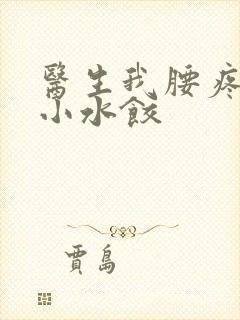 醫生我腰疼
小水餃
賈島